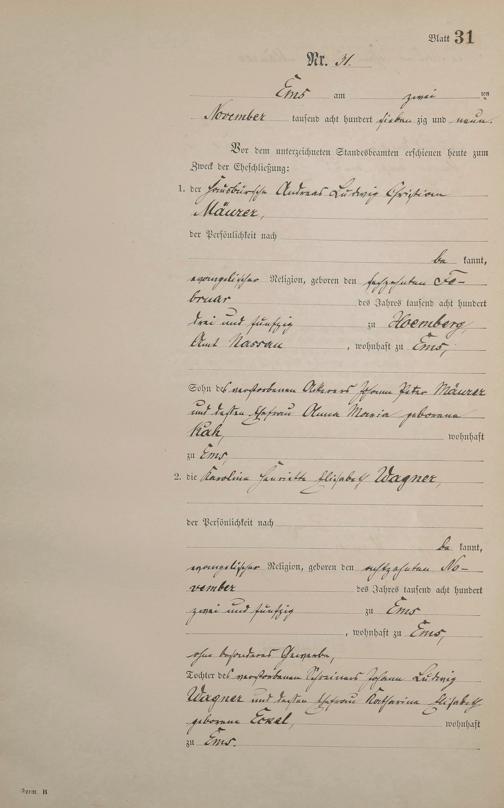 Blatt 31
Nr. 31.
Ems am zwei ten
November tausend acht hundert sieben zig und neun.
Vor dem unterzeichneten Standesbeamten erschienen heute zum
Zweck der Eheschließung:
1. der Hausbursche Andreas Ludwig Christian
Mäurer,
der Persönlichkeit nach
be kannt,
evangelischer Religion, geboren den sechzehnten Fe-
bruar des Jahres tausend acht hundert
drei und fünfzig zu Hoemberg
Amt Nassau , wohnhaft zu Ems,
Sohn des verstorbenen Ackerers Johann Peter Mäurer
und dessen Ehefrau Anna Maria geborene
wohnhaft
zu Ems,
2. die Karolina Henriette Elisabeth Wagner,
der Persönlichkeit nach
be kannt,
evangelischer Religion, geboren den achtzehnten No-
vember des Jahres tausend acht hundert
zwei und fünfzig zu Ems
, wohnhaft zu Ems,
ohne besonderes Gewerbe,
Tochter des verstorbenen Schreiners Johann Ludwig
Wagner und dessen Ehefrau Katharina Elisabeth
geborene Eckel, wohnhaft
zu Ems.
Form. B